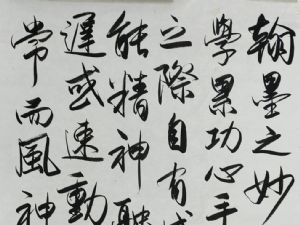 翰墨之妙
學累功心手
之際自有成
能精神
遲或速動
常而風神